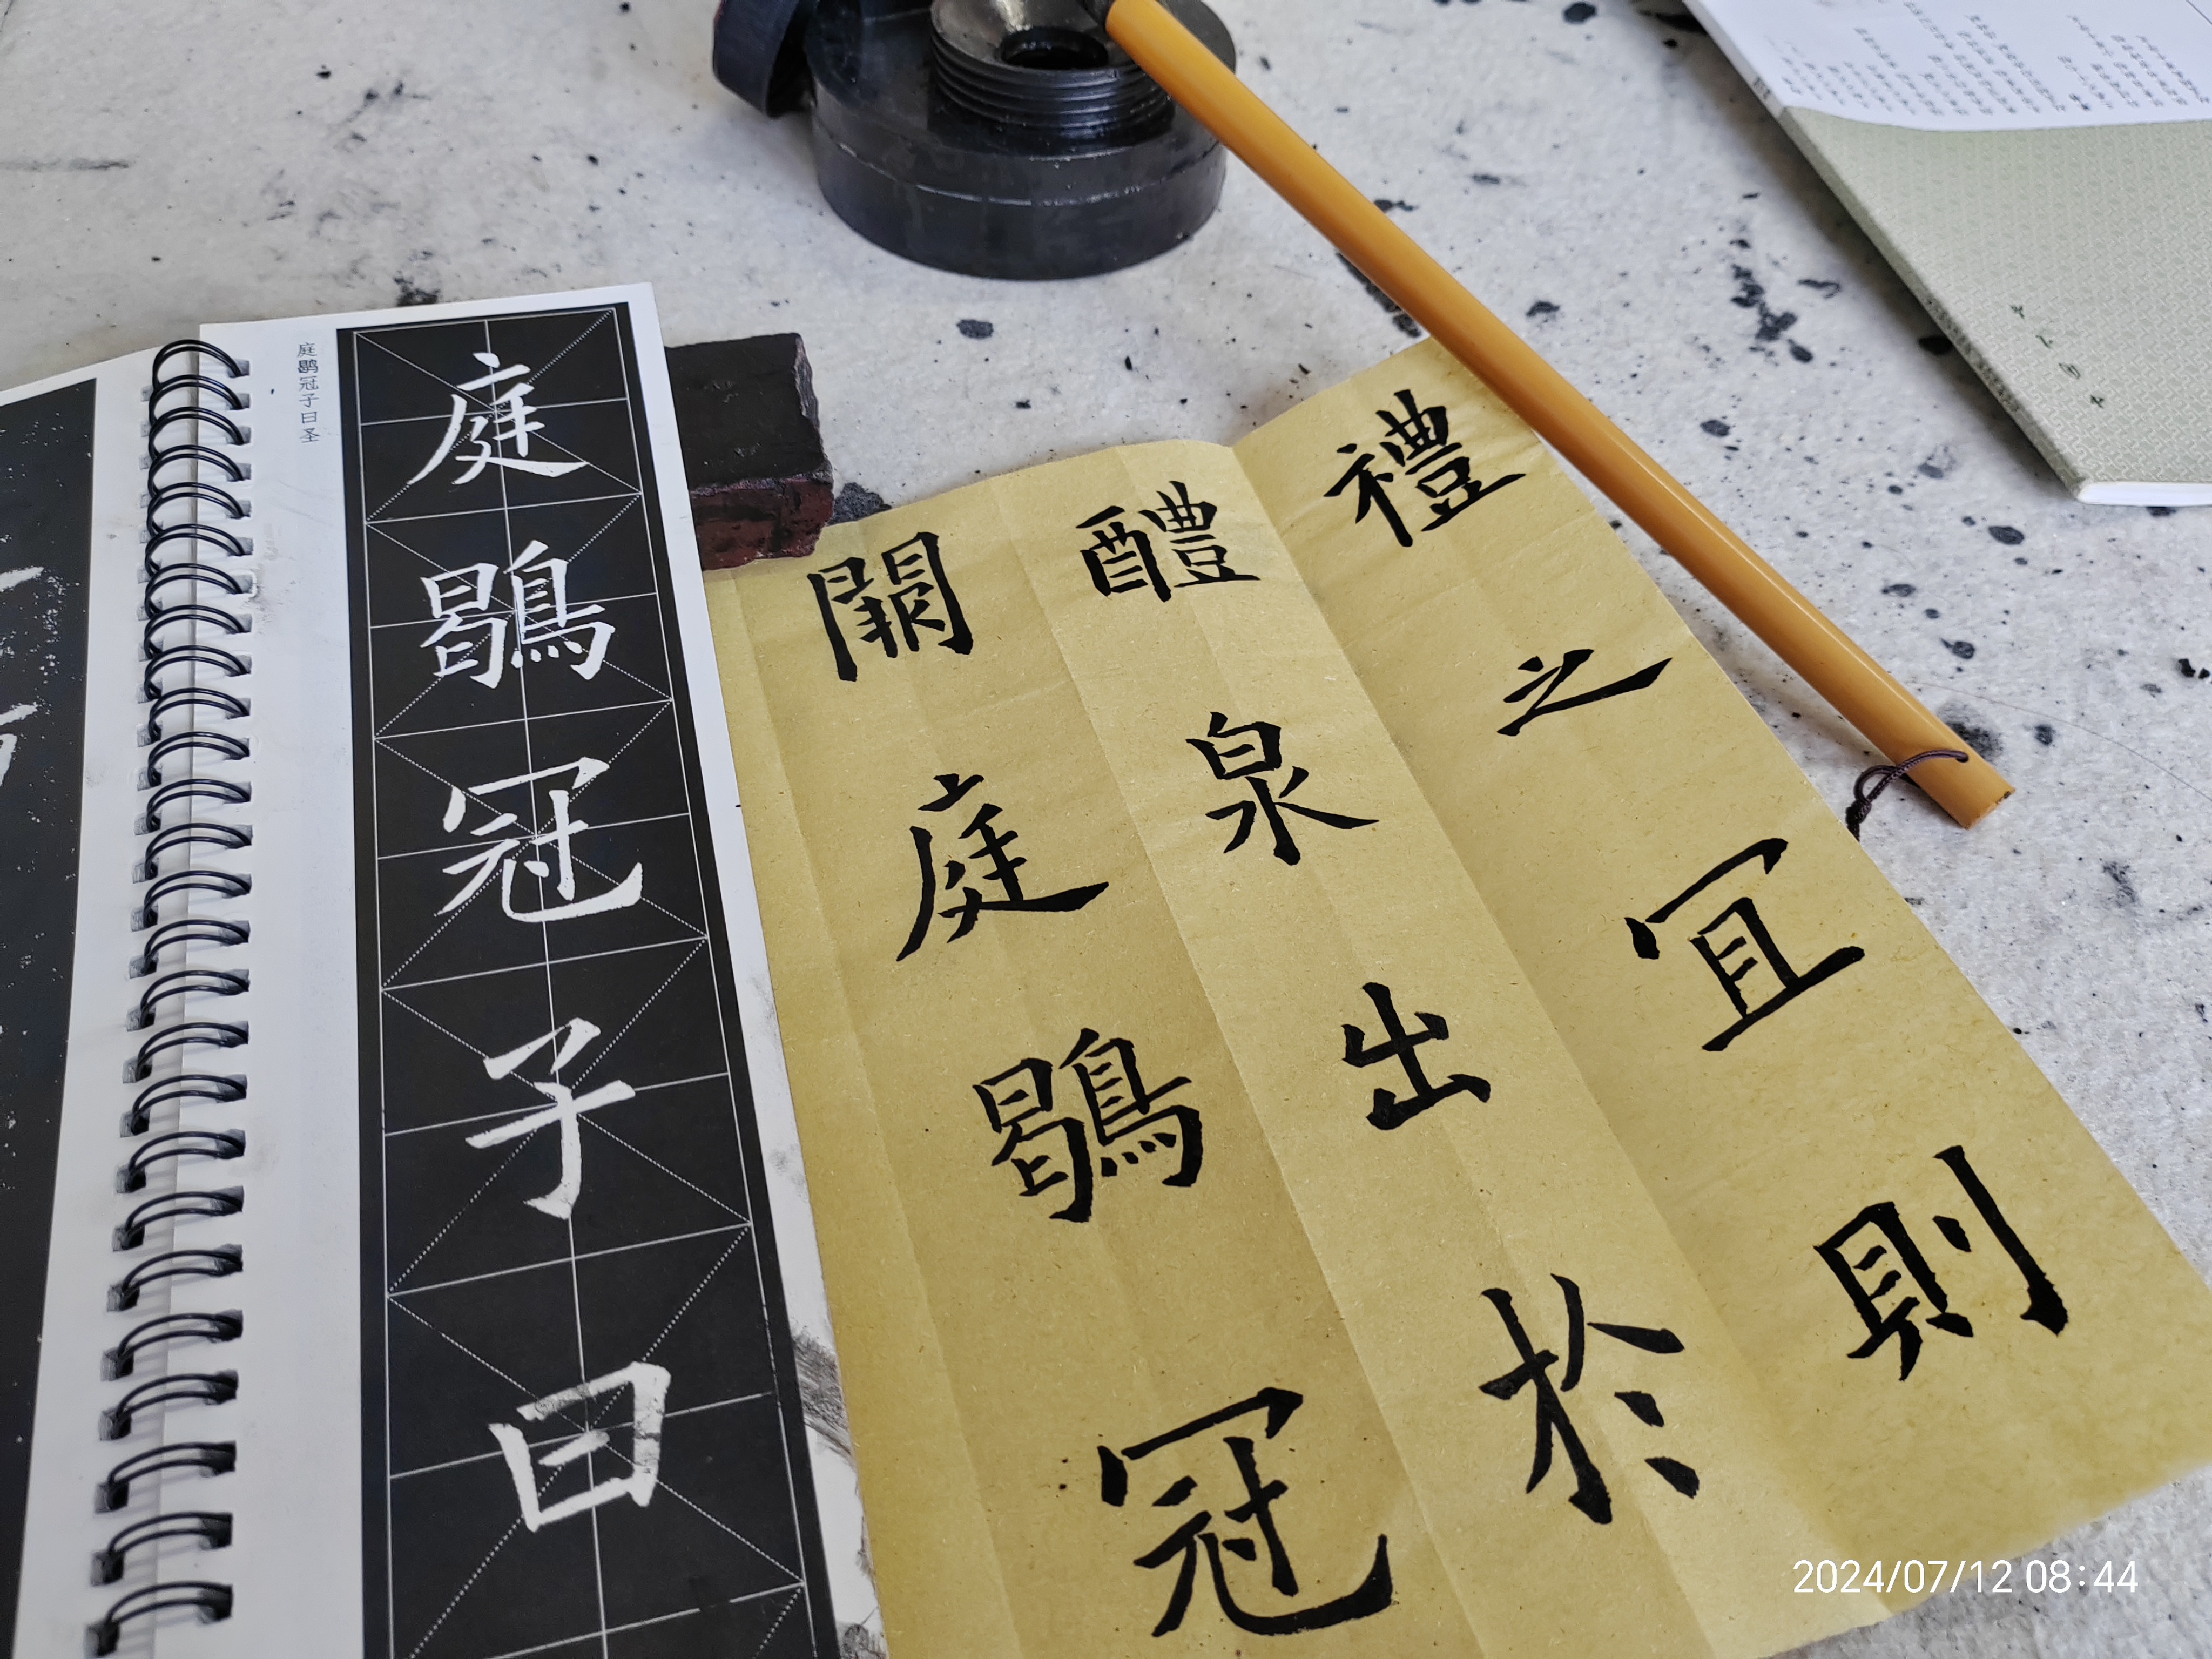 禮之宜則
醴泉出於
闕庭鶡冠
庭鶡冠子曰
庭鹖冠子曰圣
2024/07/12 08:44